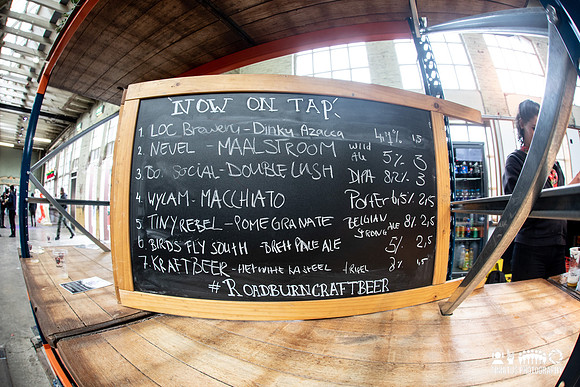 NOW ON TAP:
1. LOC Brewery - Dinky Azacca 4,1% 1,5
2. NEVEL - MAALSTROOM Wild Ale 5% 3
3. SOCIAL - DOUBLE LUSH DIPA 8,2% 3
4. WYLAM - MACCHIATO Porter 6,5% 2,5
5. TINY REBEL - POMEGRANATE BELGIAN STRONG ALE 8% 2,5
6. BIRDS FLY SOUTH - BRETT PALE ALE 5% 2,5
7. KRAFTBEER - HET WITTE KASTEEL 1,5
#ROADBURNCRAFTBEER